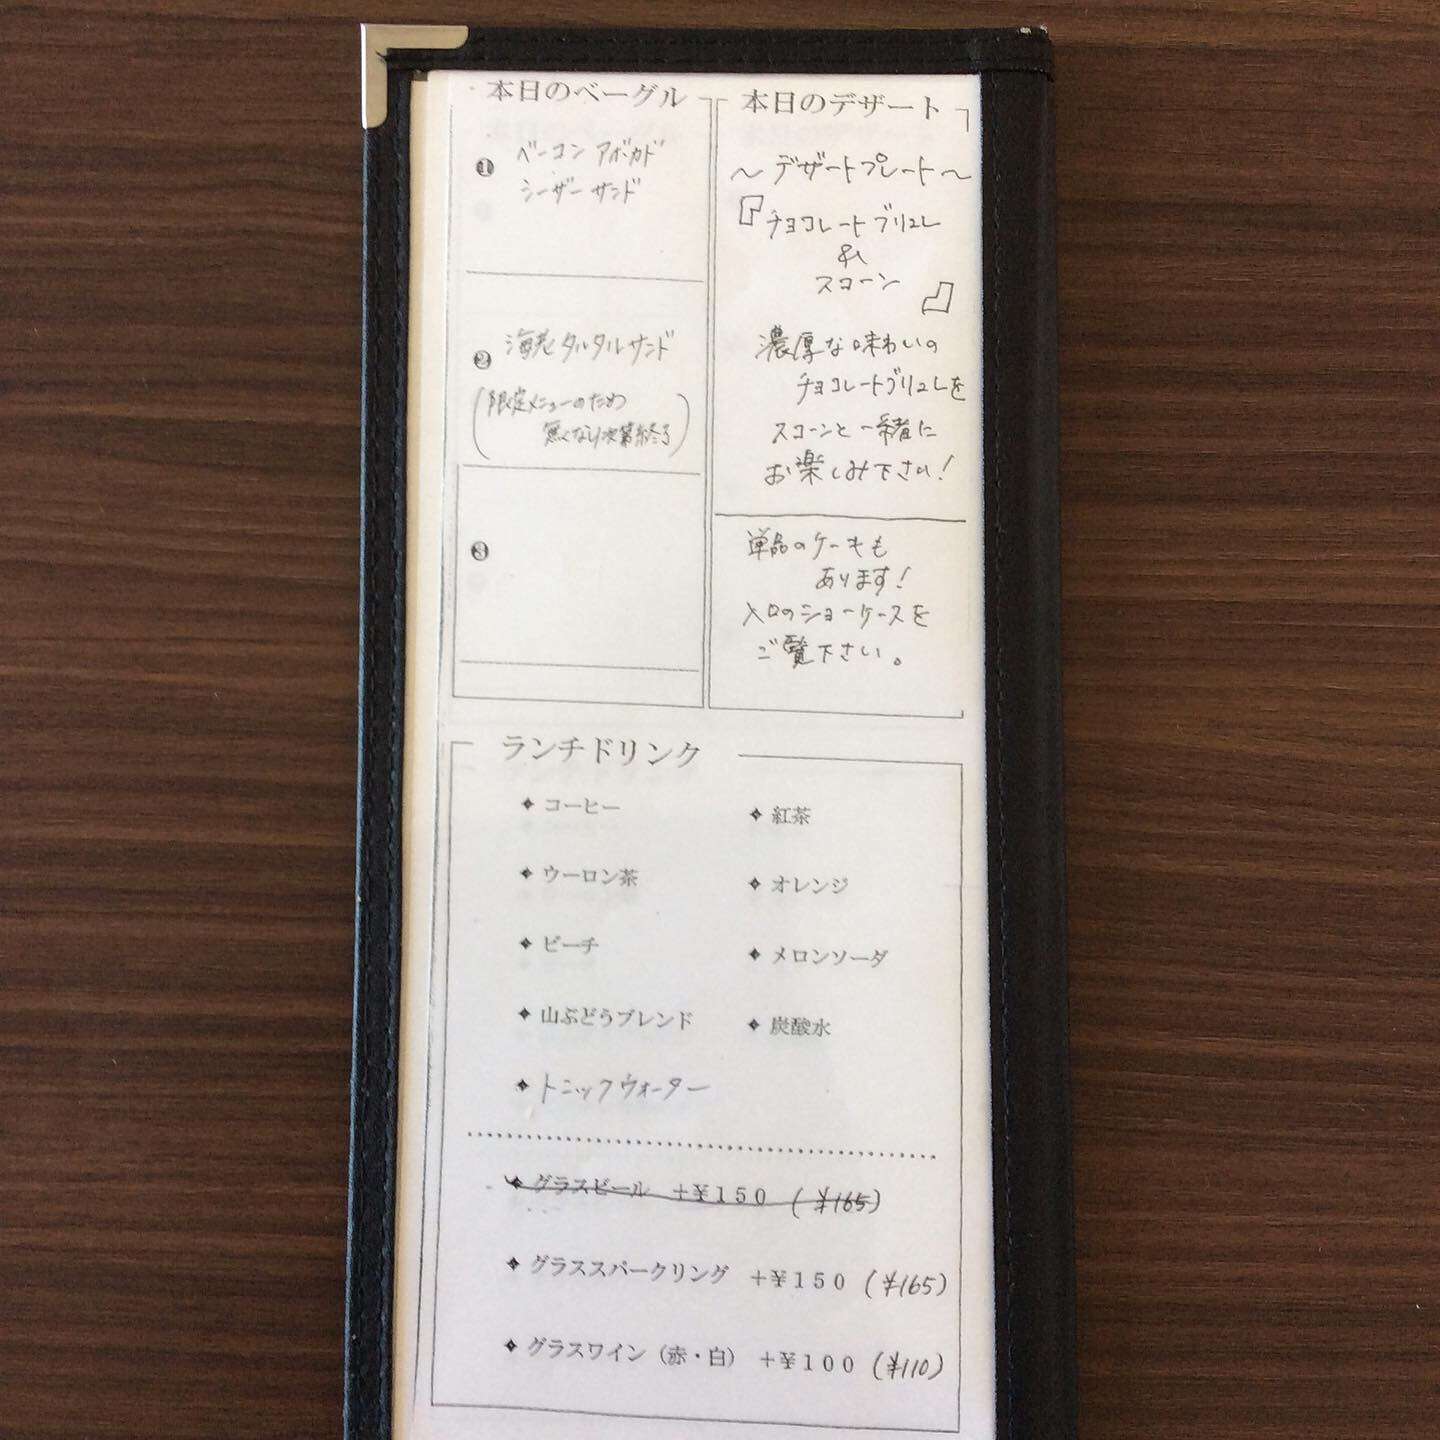 本日のベーグル
❶ ベーコン アボカド
シーザー サンド
❷ 海老タルタルサンド
(限定メニューのため
無くなり次第終了)
❸
本日のデザート
〜デザートプレート〜
『チョコレートブリュレ
&
スコーン』
濃厚な味わいの
チョコレートブリュレを
スコーンと一緒に
お楽しみ下さい!
単品のケーキも
あります!
入口のショーケースを
ご覧下さい。
ランチドリンク
✦ コーヒー
✦ 紅茶
✦ ウーロン茶
✦ オレンジ
✦ ピーチ
✦ メロンソーダ
✦ 山ぶどうブレンド
✦ 炭酸水
✦ トニックウォーター
✦ グラスビール +¥150 (¥165)
✦ グラススパークリング +¥150 (¥165)
✦ グラスワイン(赤・白) +¥100 (¥110)